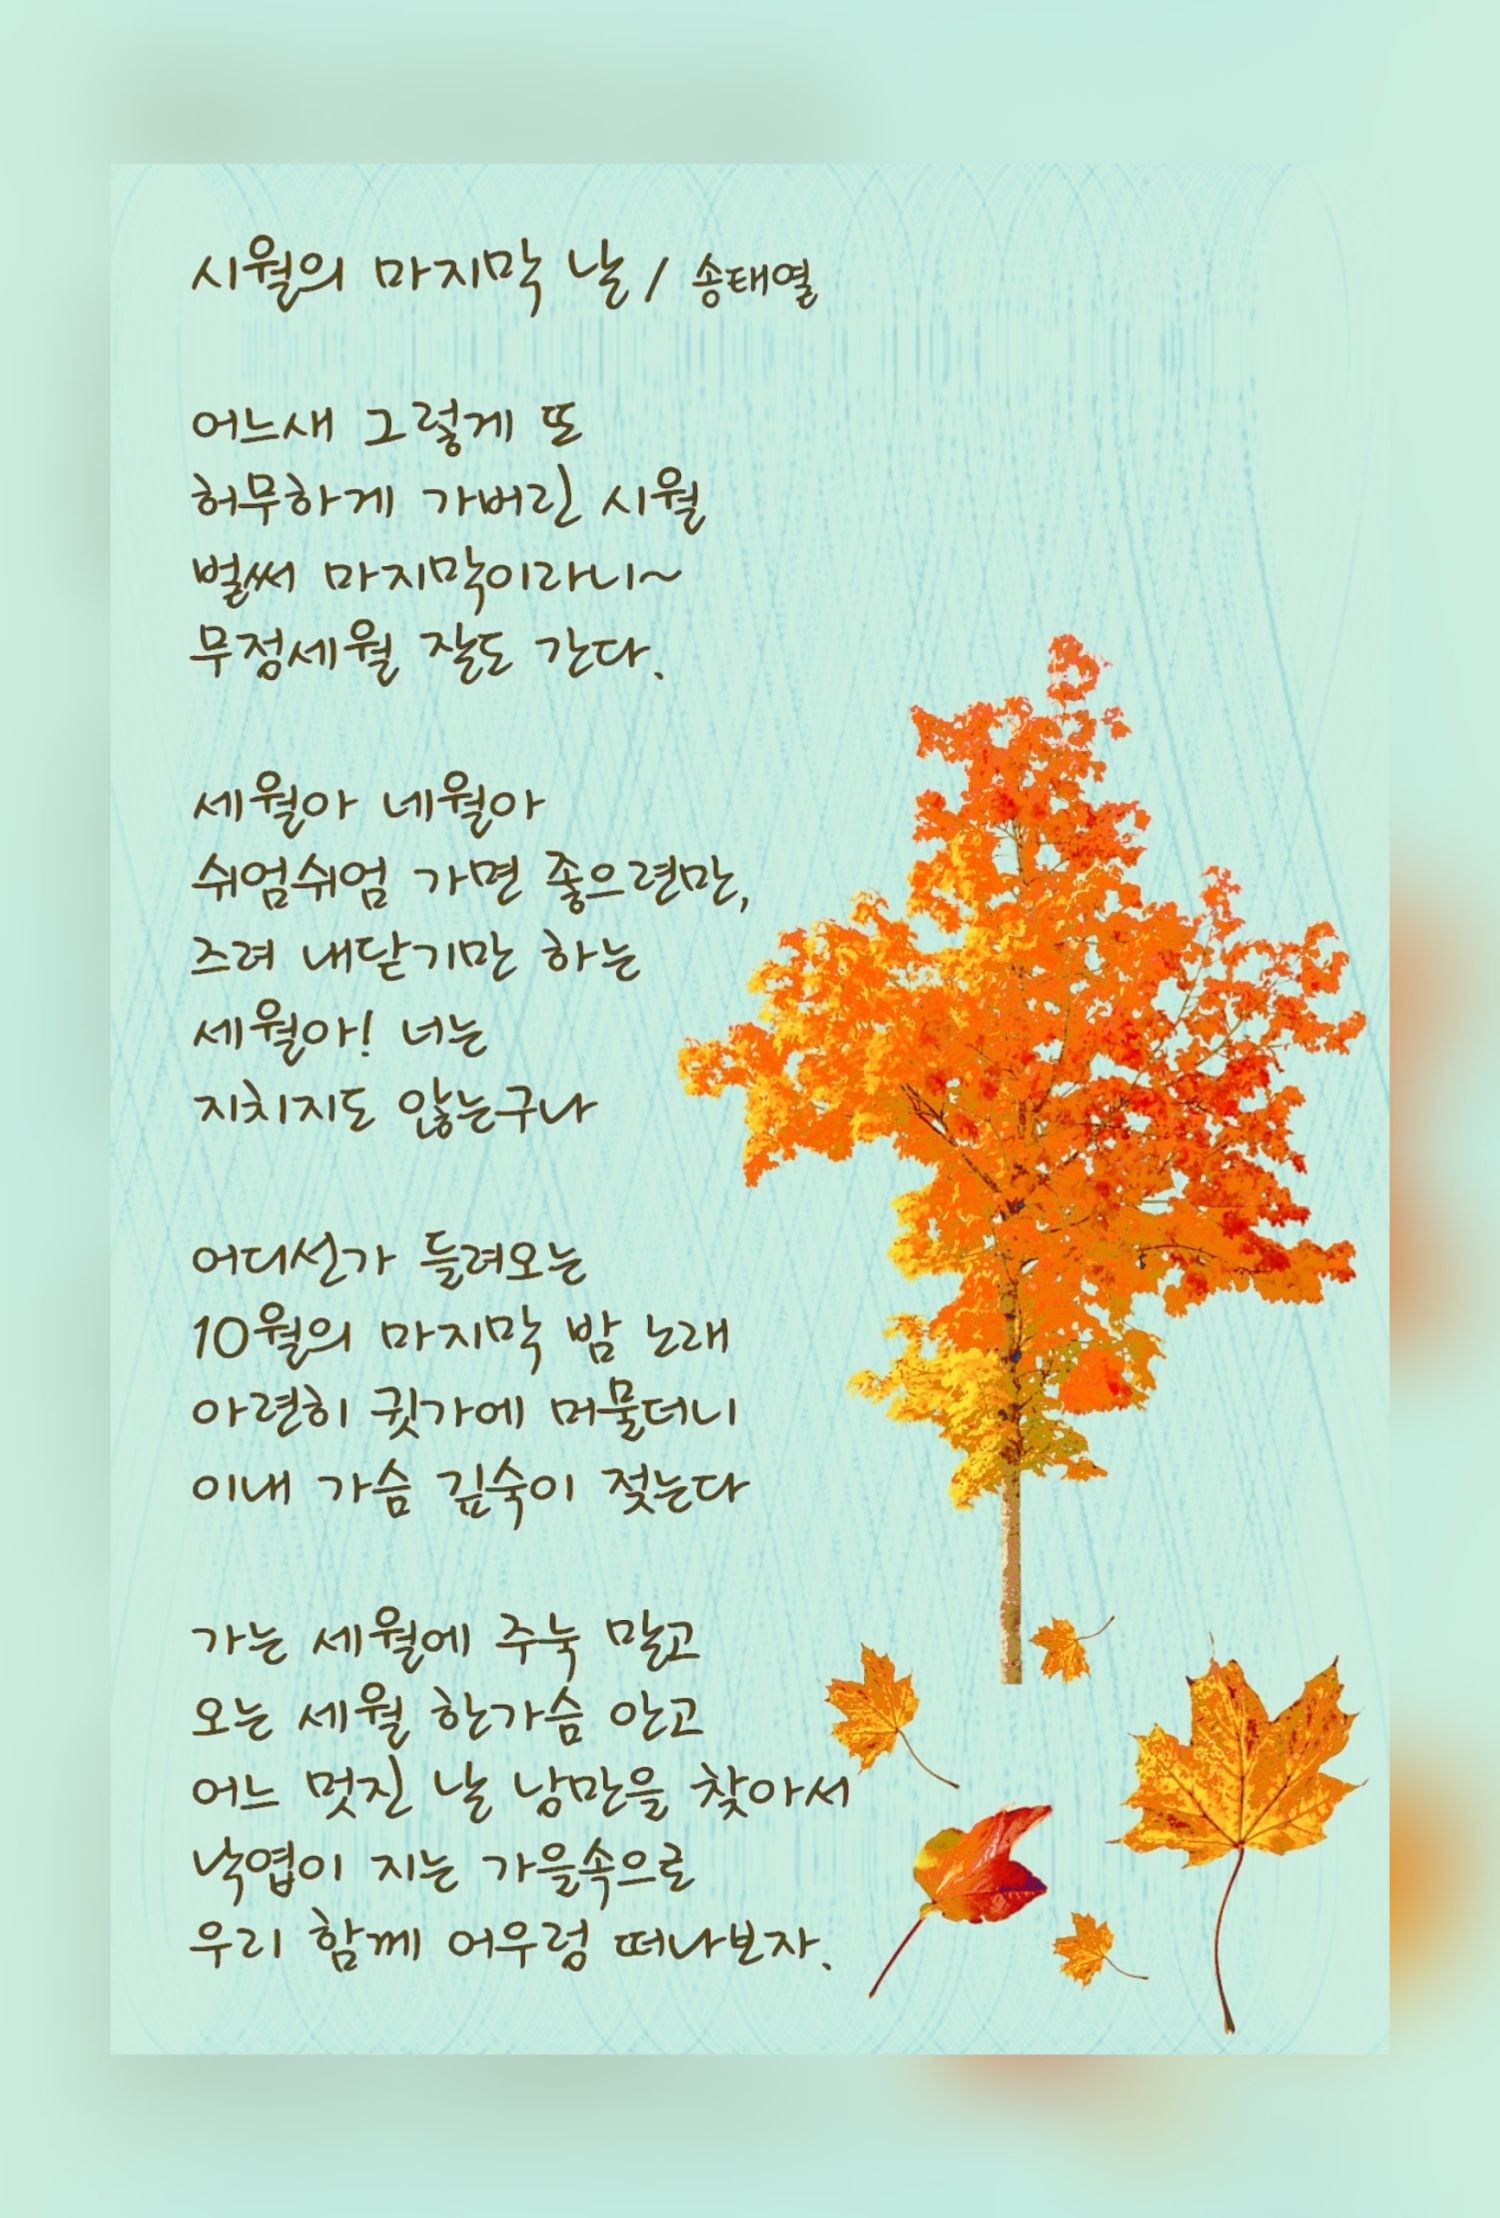 시월의 마지막 날 / 송태열
어느새 그렇게 또
허무하게 가버린 시월
벌써 마지막이라니~
무정세월 잘도 간다.
세월아 네월아
쉬엄쉬엄 가면 좋으련만,
즈려 내닫기만 하는
세월아! 너는
지치지도 않는구나
어디선가 들려오는
10월의 마지막 밤 노래
아련히 귓가에 머물더니
이내 가슴 깊숙이 젖는다
가는 세월에 주눅 말고
오는 세월 한가슴 안고
어느 멋진 날 낭만을 찾아서
낙엽이 지는 가을속으로
우리 함께 어우렁 떠나보자.